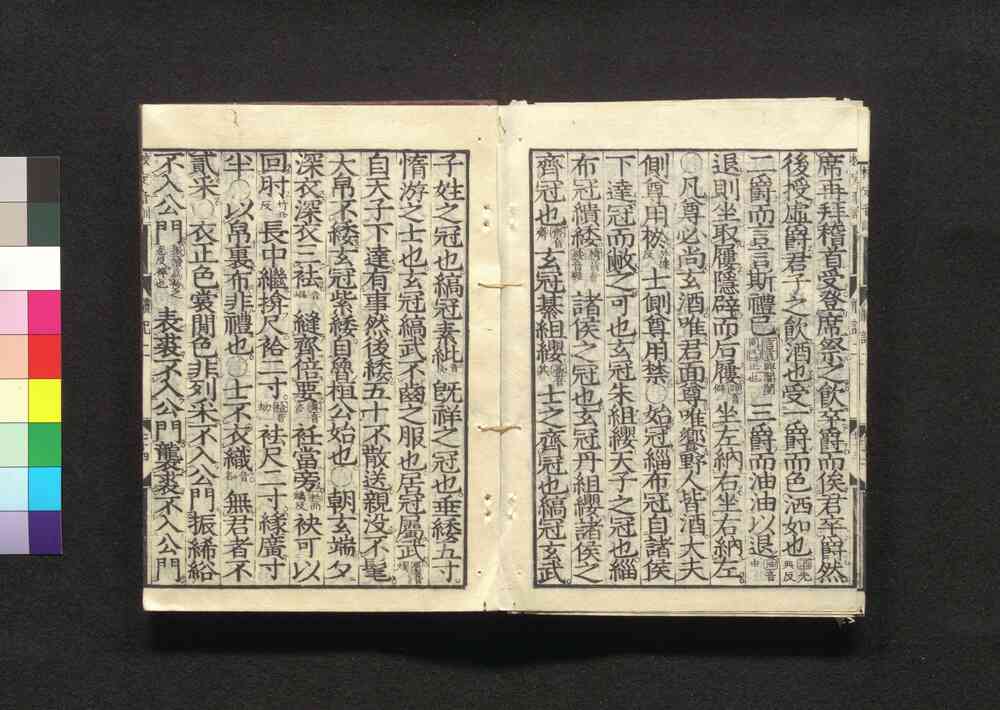 席再拜稽首受登席祭之飲卒爵而俟君卒爵然
後授虛爵君子之飲酒也受一爵而色洒如也
二爵而言言斯禮已三爵而油油以退
退則坐取屨隱辟而后屨坐左納右坐右納左
凡尊必尚玄酒唯君面尊唯饗野人皆酒大夫
側尊用棜士側尊用禁始冠緇布冠自諸侯
下達冠而敝之可也玄冠朱組纓天子之冠也緇
布冠繢緌諸侯之冠也玄冠丹組纓諸侯之
齊冠也玄冠綦組纓士之齊冠也縞冠玄武
子姓之冠也縞冠素紕旣祥之冠也垂緌五寸
惰游之士也玄冠縞武不齒之服也居冠屬武
自天子下達有事然後緌五十不散送親沒不髦
大帛不緌玄冠紫緌自魯桓公始也朝玄端夕
深衣深衣三袪縫齊倍要衽當旁袂可以
回肘長中繼揜尺袷二寸袪尺二寸緣廣寸
半以帛裏布非禮也士不衣織無君者不
貳采衣正色裳閒色非列采不入公門振絺綌
不入公門表裘不入公門襲裘不入公門